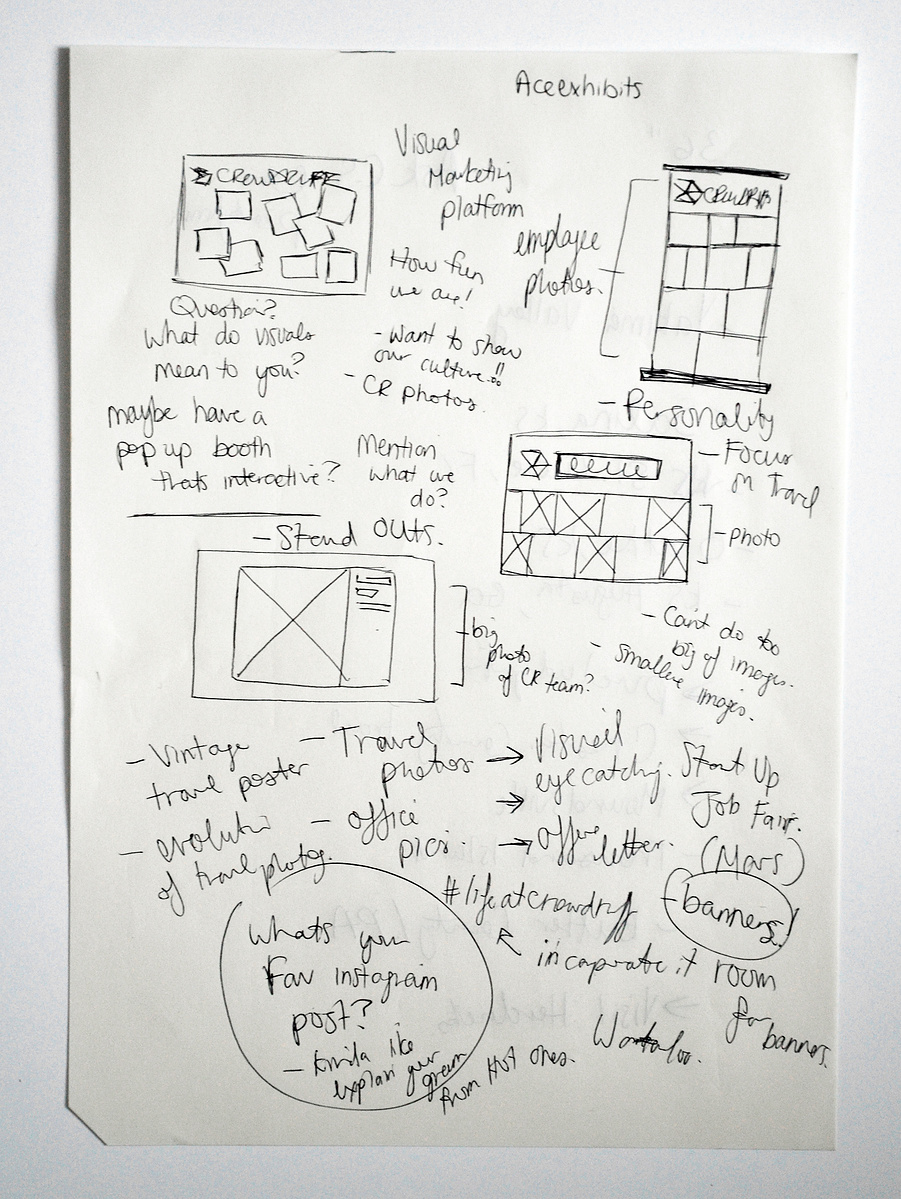 Aceexhibits
Visual
Marketing
platform
CROWDRIFF
How fun
we are!
- Want to show
our culture!!
- CR photos.
employee
photos.
CROWDRIFF
Question?
What do visuals
mean to you?
maybe have a
pop up booth
thats interactive?
Mention
what we
do?
- Personality
- Focus
on Travel
- photo
- Stand OUTS.
- big
photo
of CR team?
- Can't do too
big of images.
- smaller images.
- Vintage
travel poster
- evolution
of travel photog.
- Travel
photos
- office
pics.
→ Visual
eyecatching.
→
→ offer
letter.
Start Up
Job Fair.
(Mars)
- banners.
#lifeatcrowdriff
incaporate it
room
for
banners.
Waterloo.
Whats your
Fav instagram
post?
- kinda like
explain your gram
from Hot ones.